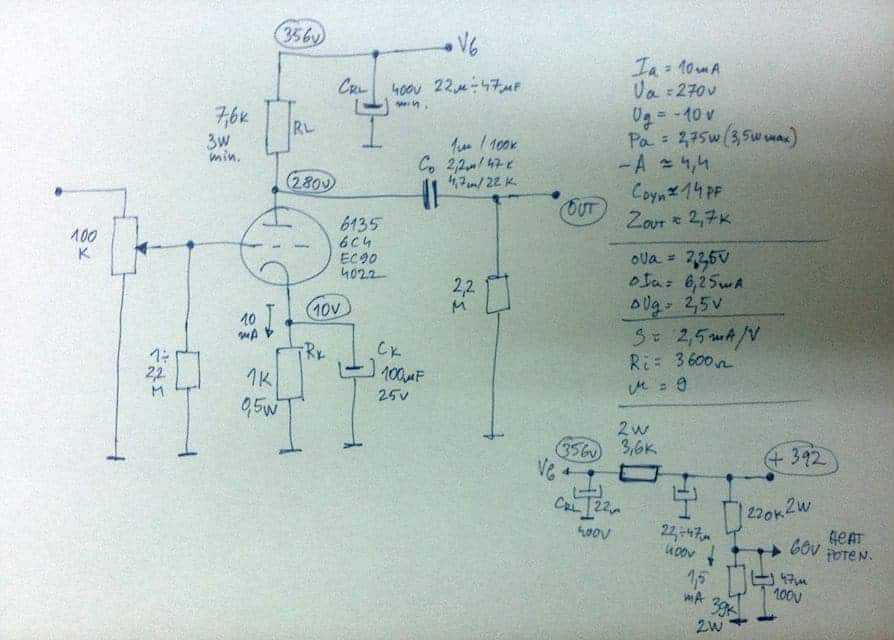 356V
V6
CRL
400V
min.
22µ÷47µF
7,6K
3W
min.
RL
1µ/100K
2,2µ/47K
4,7µ/22K
C0
280V
OUT
100
K
6135
6C4
EC90
4022
10V
10
mA
1÷
2,2
M
RK
1K
0,5W
CK
100µF
25V
2,2
M
Ia = 10mA
Ua = 270V
Ug = -10V
Pa = 2,75W (3,5W max)
-A ≈ 4,4
CDYN ≈ 14PF
ZOUT ≈ 2,7K
ΔIa = 6,25mA
ΔUg = 2,5V
S = 2,5mA/V
Ri = 3600Ω
µ = 9
2W
3,6K
356V
V6
+392
CRL
22µ
400V
22÷47µ
400V
220K 2W
60V HEAT
POTEN.
1,5
mA
39K
2W
47µ
100V